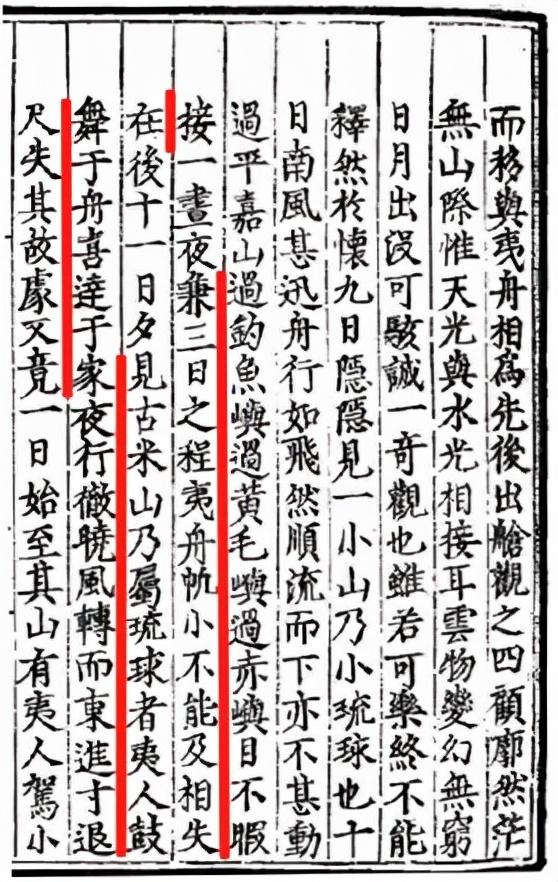 而移與夷舟相爲先後出艙觀之四顧廓然茫
無山際惟天光與水光相接耳雲物變幻無窮
日月出沒可駭誠一奇觀也雖若可樂終不能
釋然於懷九日隱隱見一小山乃小琉球也十
日南風甚迅舟行如飛然順流而下亦不甚動
過平嘉山過釣魚嶼過黃毛嶼過赤嶼目不暇
接一晝夜兼三日之程夷舟帆小不能及相失
在後十一日夕見古米山乃屬琉球者夷人鼓
舞于舟喜達于家夜行徹曉風轉而東進寸退
尺失其故處又竟一日始至其山有夷人駕小